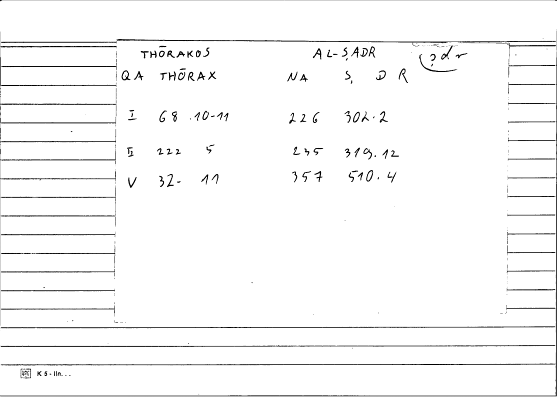 THŌRAKOS AL-ṢADR ṣdr
QA THŌRAX NA Ṣ D R
I 68 .10-11 226 302.2
II 222 5 235 319.12
V 32- 11 357 510.4
K 5 - lin. . .